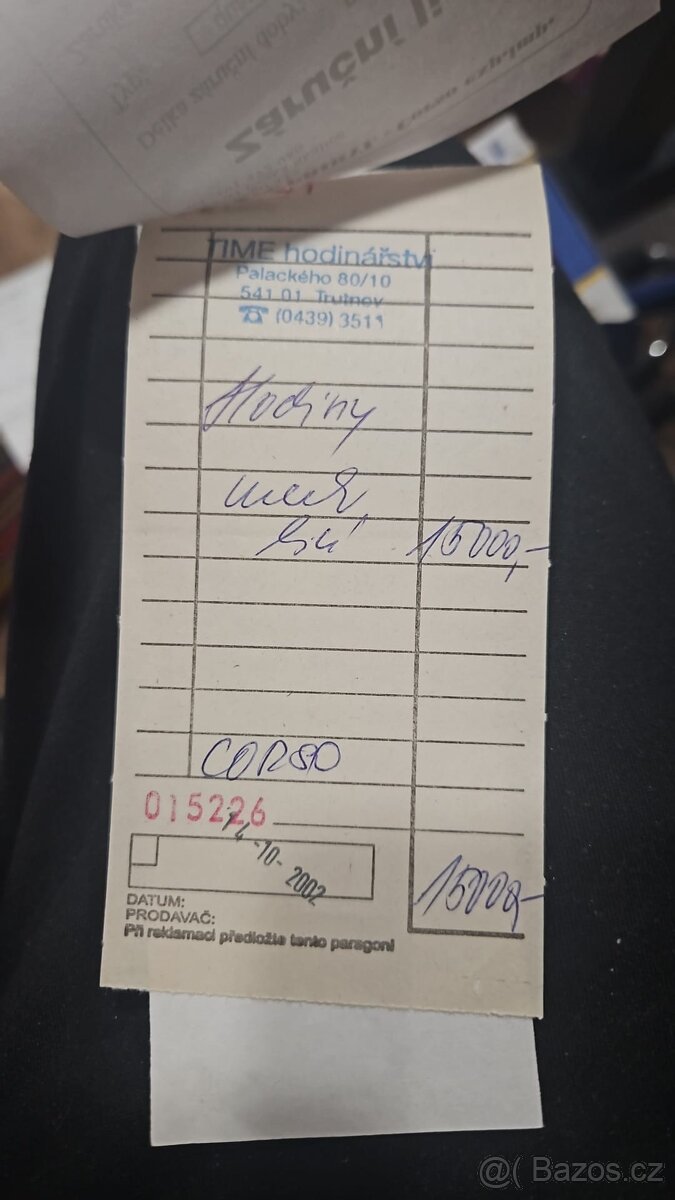 Záruční li
Délka záruční doby:
Typ:
TIME hodinářství
Palackého 80/10
541 01 Trutnov
☎ (0439) 3511
Hodiny
15000,-
CORSO
015226
14 -10- 2002
15000,-
DATUM:
PRODAVAČ:
Při reklamaci předložte tento paragon!
@( Bazos.cz